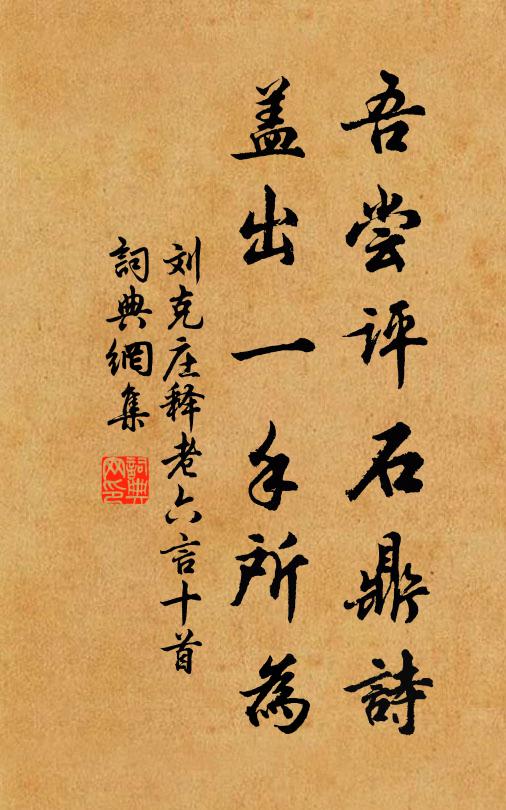 吾尝评石鼎詩
盖出一手所為
刘克庄释老六言十首
詞典網集
詞典